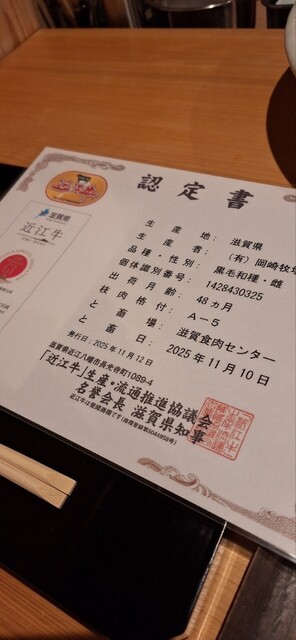 認定書
近江牛
滋賀県
近江牛
生産地: 滋賀県
生産者: (有) 岡崎牧場
品種・性別: 黒毛和種・雌
個体識別番号: 1428430325
出荷月齢: 48カ月
枝肉格付: A-5
と畜場: 滋賀食肉センター
と畜日: 2025年11月10日
発行日:2025年11月12日
滋賀県近江八幡市長光寺町1089-4
「近江牛」生産・流通推進協議会
名誉会長 滋賀県知事
近江牛は登録商標です